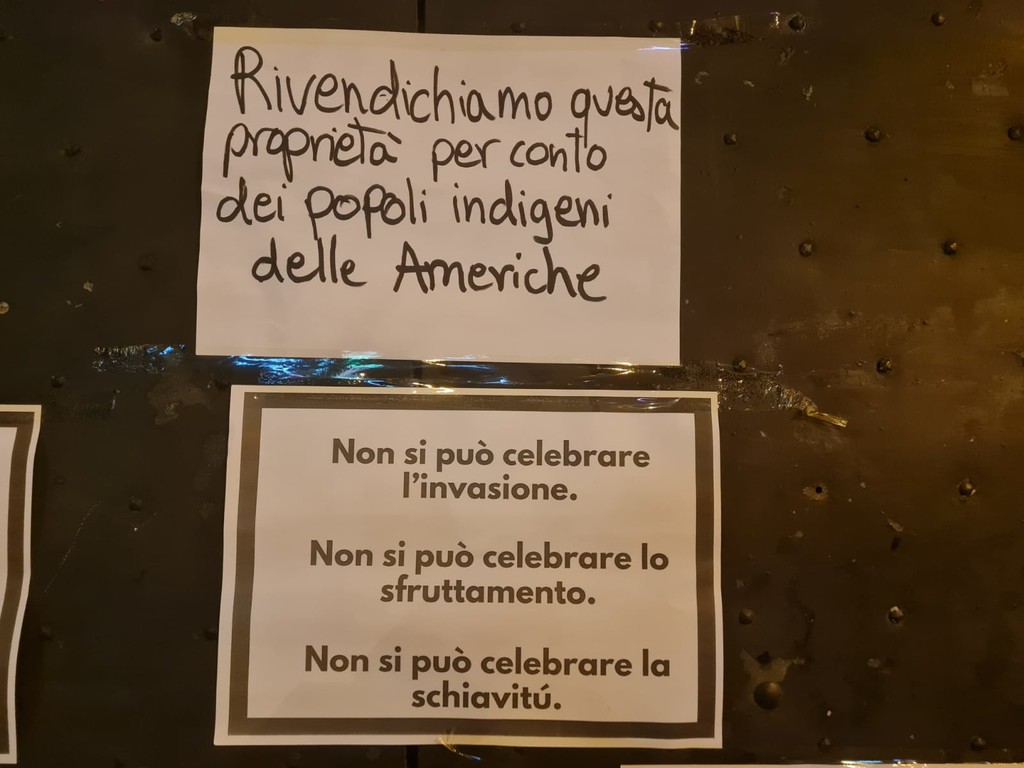 Rivendichiamo questa
proprietà per conto
dei popoli indigeni
delle Americhe
Non si può celebrare
l'invasione.
Non si può celebrare lo
sfruttamento.
Non si può celebrare la
schiavitú.